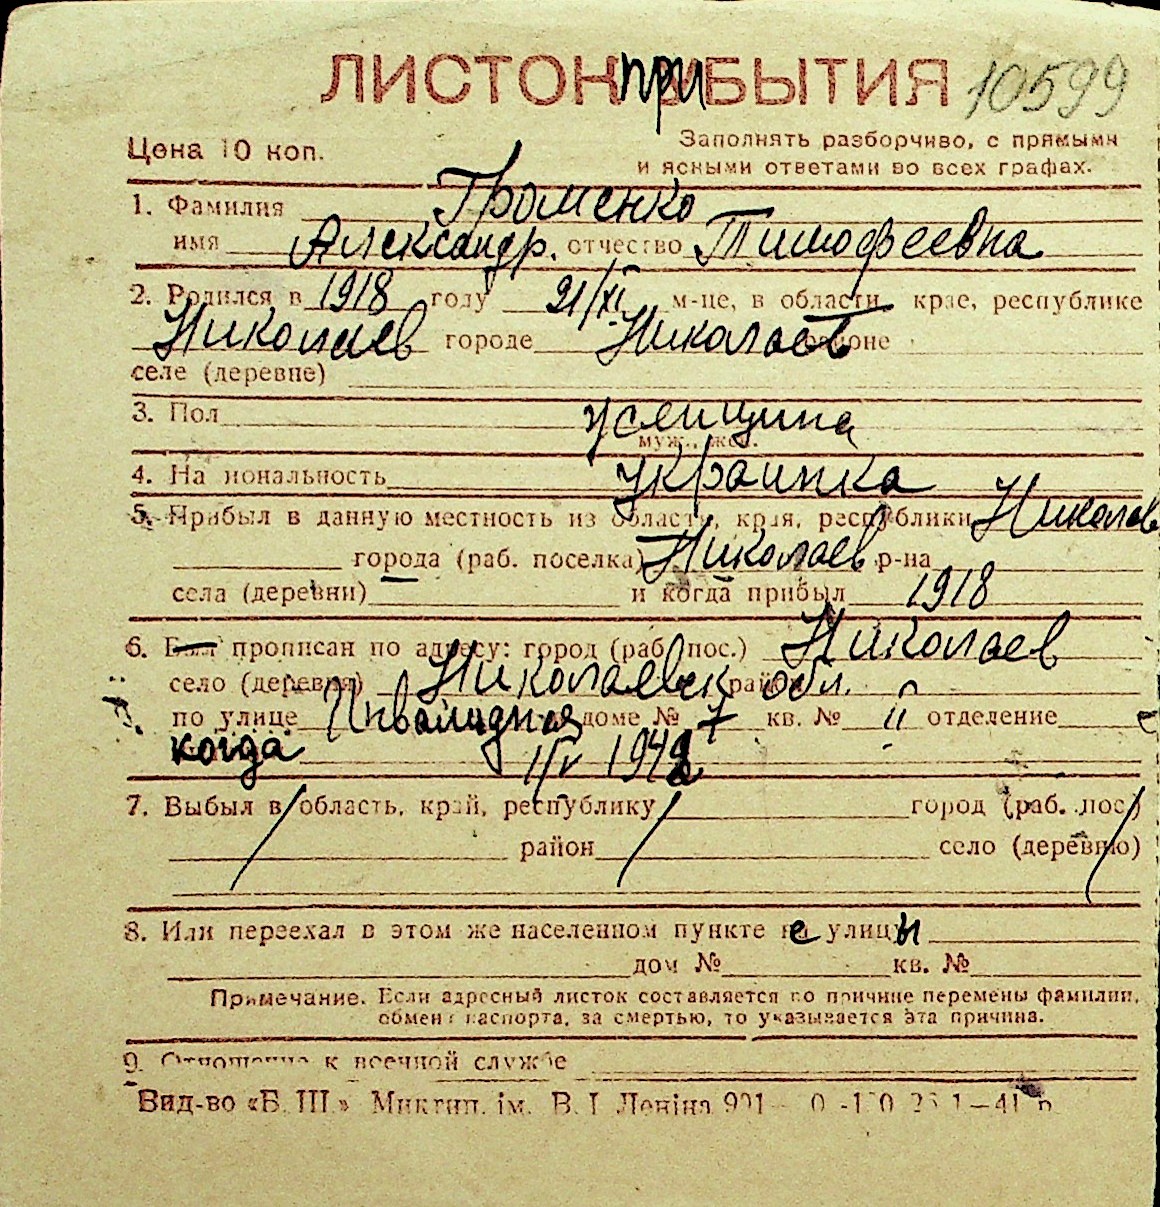 ЛИСТОК ПРИБЫТИЯ 10599
Цена 10 коп. Заполнять разборчиво, с прямыми
и ясными ответами во всех графах.
1. Фамилия Громенко
имя Александр. отчество Тимофеевна
2. Родился в 1918 году 21/XI м-це, в области, крае, республике
Николаев городе Николаев районе
селе (деревне)
3. Пол женщина
муж., жен.
4. Национальность украинка
5. Прибыл в данную местность из области, края, республики Николаев
города (раб. поселка) Николаев р-на
села (деревни) и когда прибыл 1918
6. Был прописан по адресу: город (раб. пос.) Николаев
село (деревня) Николаевск район обл.
по улице Инвалидная доме № 7 кв. № отделение
когда 1/V 1942
7. Выбыл в область, край, республику город (раб. пос.)
район село (деревню)
8. Или переехал в этом же населенном пункте с улицы
дом № кв. №
Примечание. Если адресный листок составляется по причине перемены фамилии,
обмена паспорта, за смертью, то указывается эта причина.
9. Отношение к военной службе
Вид-во «Б. Ш.» Миктип. ім. В. І. Леніна